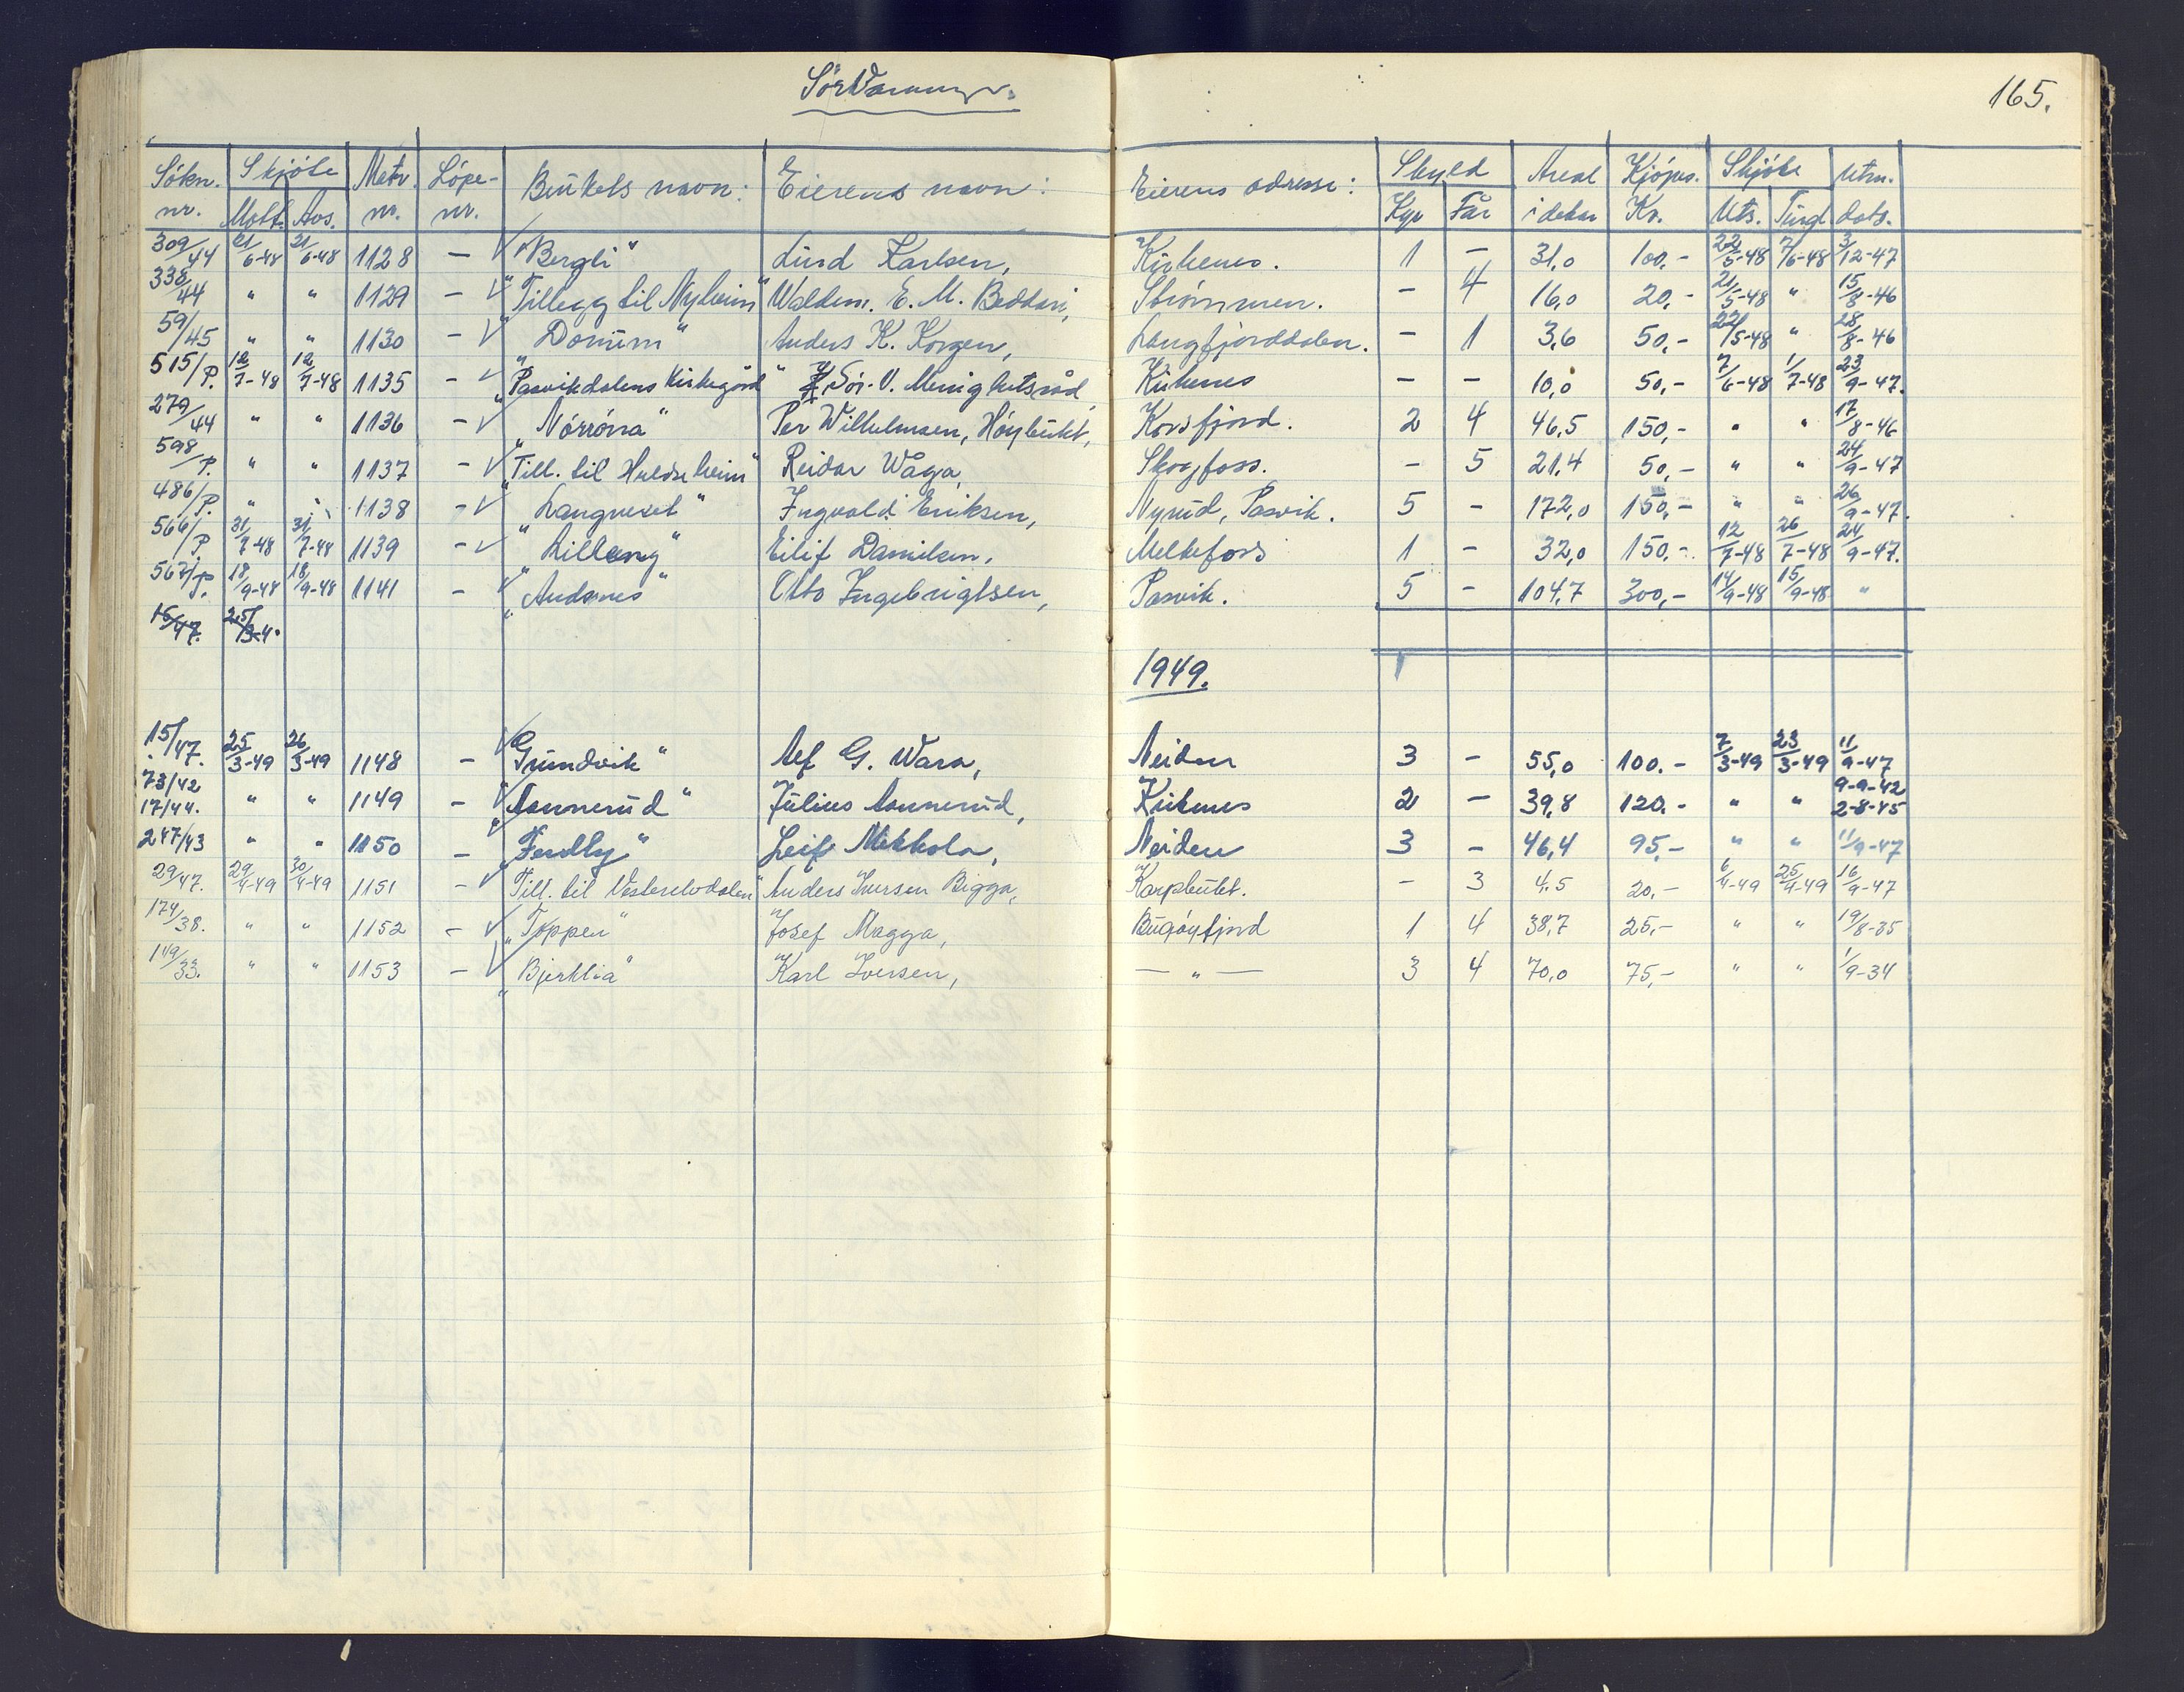 SörVaranger.
165.
Sökn. nr. Skjöte Mott. Avs. Matr. nr. Löpe-nr. Brukets navn: Eierens navn: Eierens adresse: Skyld Kyr Får Areal i dekar Kjöpes. Kr. Skjöte Uts. Tingl. Utm. dato.
309/44 21/6-48 21/6-48 1128 - "Bergli" Lind Karlsen, Kirkenes. 1 - 31,0 100,- 22/5-48 7/6-48 3/12-47
338/44 " " 1129 - "Tillegg til Nyheim" Waldem. E. M. Beddari, Strömmen. - 4 16,0 20,- 21/5-48 " 15/8-46
59/45 " " 1130 - "Domum" Anders K. Korgen, Langfjorddalen. - 1 3,6 50,- 22/5-48 " 28/8-46
515/P. 12/7-48 12/7-48 1135 - "Pasvikdalens Kirkegård" Sör-V. Menighetsråd, Kirkenes - - 10,0 50,- 7/6-48 1/7-48 23/9-47.
279/44 " " 1136 - "Nörröna" Per Wilhelmsen, Höybukt, Korsfjord. 2 4 46,5 150,- " " 17/8-46
598/P. " " 1137 - "Till. til Huldreheim" Reidar Wåga, Skogfoss. - 5 21,4 50,- " " 24/9-47
486/P. " " 1138 - "Langneset" Ingvald Eriksen, Nyrud, Pasvik. 5 - 172,0 150,- " " 26/9-47.
566/P 31/7-48 31/7-48 1139 - "Lilleng" Eilif Danielsen, Melkefoss 1 - 32,0 150,- 12/7-48 26/7-48 24/9-47.
567/P. 18/9-48 18/9-48 1141 - "Andsnes" Otto Ingebrigtsen, Pasvik. 5 - 104,7 300,- 14/9-48 15/9-48 "
15/47. 25/3-4
1949.
15/47. 25/3-49 26/3-49 1148 - "Grundvik" Alf G. Wara, Neiden 3 - 55,0 100.- 7/3-49 23/3-49 11/9-47
73/42 17/44. " " 1149 - "Aannerud" Julius Aannerud, Kirkenes 2 - 39,8 120.- " " 9-9-42 2-8-45
247/43 " " 1150 - "Ferdly" Leif Mekkola, Neiden 3 - 46,4 95,- " " 11/9-47
29/47. 29/4-49 30/4-49 1151 - "Till. til Vesterelvdalen" Anders Iversen Bigga, Karpbukt. - 3 4,5 20,- 6/4-49 25/4-49 16/9-47
174/38. " " 1152 - "Toppen" Josef Magga, Bugöyfjord 1 4 38,7 25,- " " 19/8-35
119/33. " " 1153 - "Bjerklia" Karl Iversen, — " — 3 4 70,0 75,- " " 1/9-34